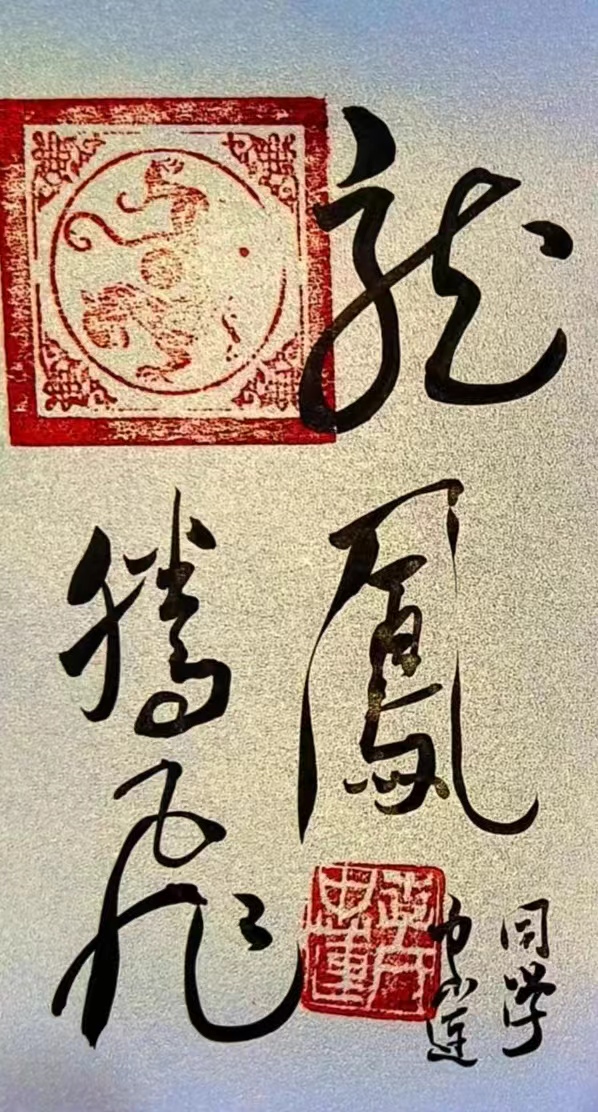 龍鳳
騰飛
同学